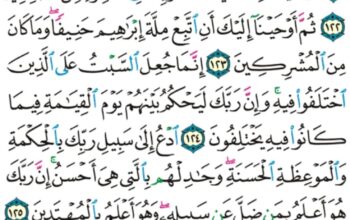 ١٢٢ ثُمَّ أَوْحَيْنَا إِلَيْكَ أَنِ ٱتَّبِعْ مِلَّةَ إِبْرَٰهِيمَ حَنِيفًا ۖ وَمَا كَانَ
مِنَ ٱلْمُشْرِكِينَ ١٢٣ إِنَّمَا جُعِلَ ٱلسَّبْتُ عَلَى ٱلَّذِينَ
ٱخْتَلَفُوا۟ فِيهِ ۚ وَإِنَّ رَبَّكَ لَيَحْكُمُ بَيْنَهُمْ يَوْمَ ٱلْقِيَٰمَةِ فِيمَا
كَانُوا۟ فِيهِ يَخْتَلِفُونَ ١٢٤ ٱدْعُ إِلَىٰ سَبِيلِ رَبِّكَ بِٱلْحِكْمَةِ
وَٱلْمَوْعِظَةِ ٱلْحَسَنَةِ ۖ وَجَٰدِلْهُم بِٱلَّتِى هِىَ أَحْسَنُ ۚ إِنَّ رَبَّكَ
هُوَ أَعْلَمُ بِمَن ضَلَّ عَن سَبِيلِهِۦ ۖ وَهُوَ أَعْلَمُ بِٱلْمُهْتَدِينَ ١٢٥